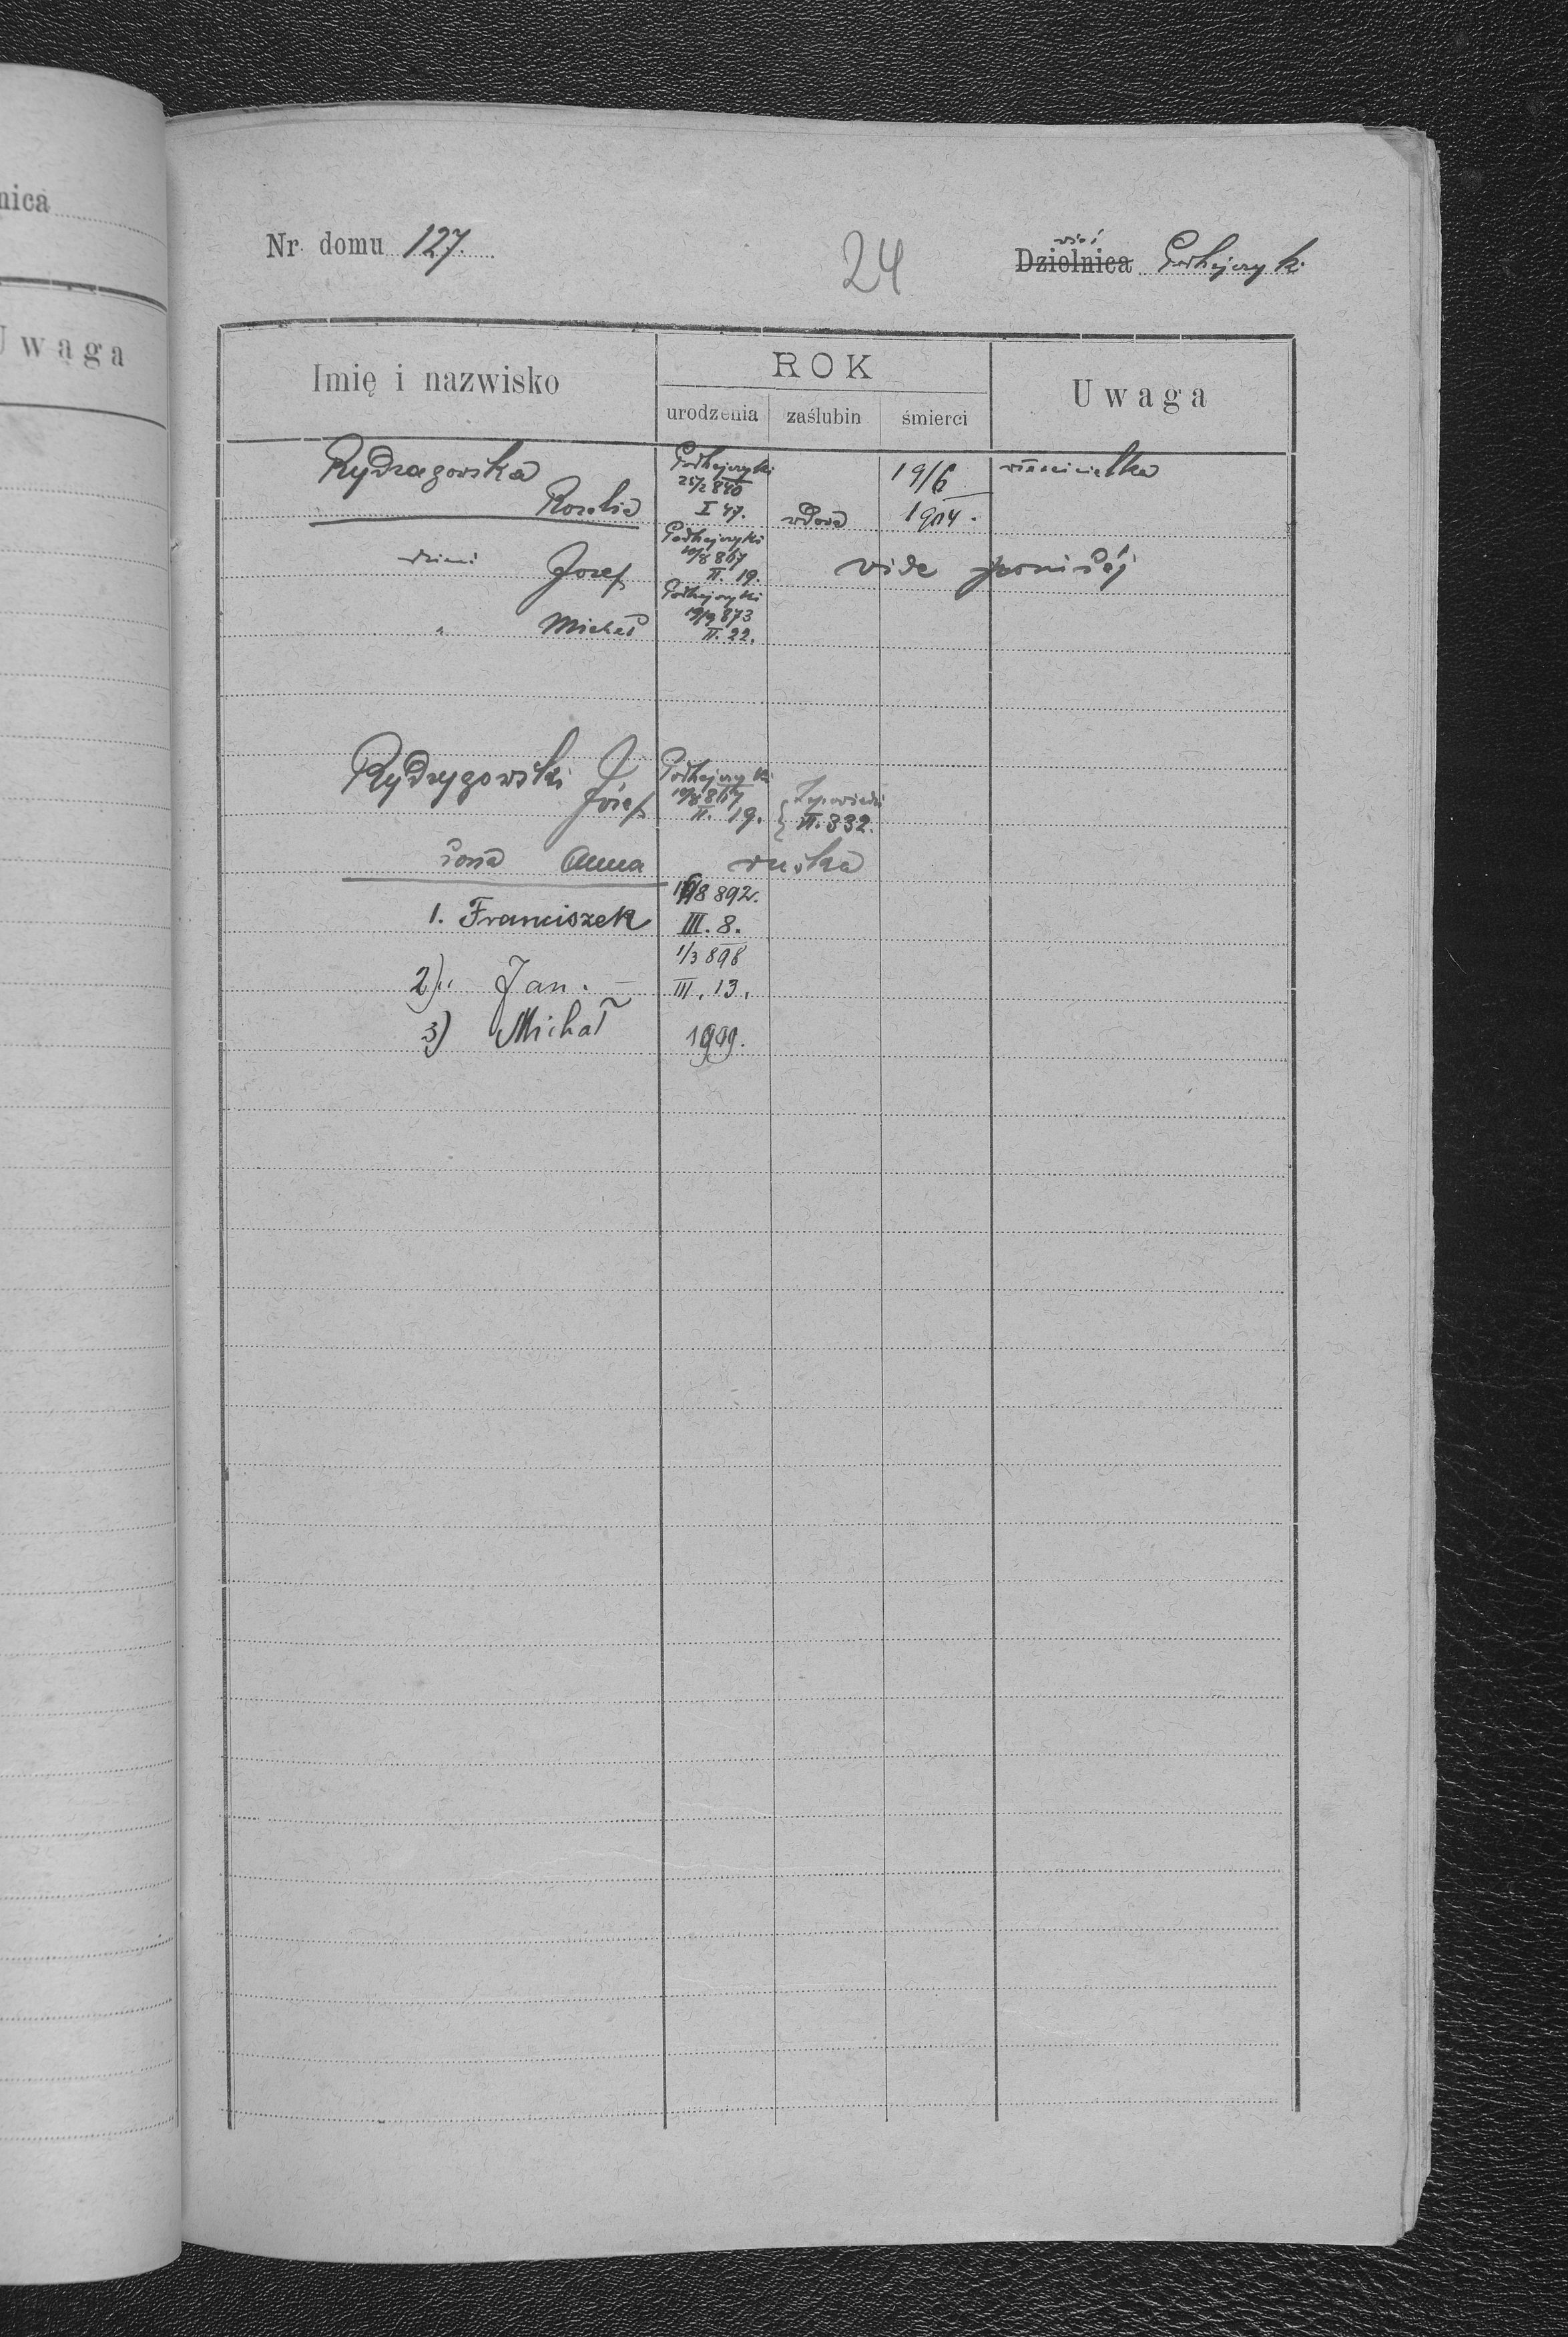 nica
Uwaga
Nr. domu 127.
24
wieś
Dzielnica Podhajczyki
Imię i nazwisko
ROK
urodzenia zaślubin śmierci
Uwaga
Rydzagowska
Rozalia
Podhajczyki
25/2 840
I 47.
wdowa
19/6
1904.
właścicielka
dzieci Jozef
Podhajczyki
10/8 867
II. 19.
vide poniżej
" Michał
Podhajczyki
19/9 873
II. 22.
Rydzygowski
Józef
Podhajczyki
10/8 867
II. 19.
Zapowiedzi
II. 332.
żona Anna ruska
1. Franciszek
/8 892.
III. 8.
2) " Jan. —
1/3 898
III. 13.
3) Michał 1909.